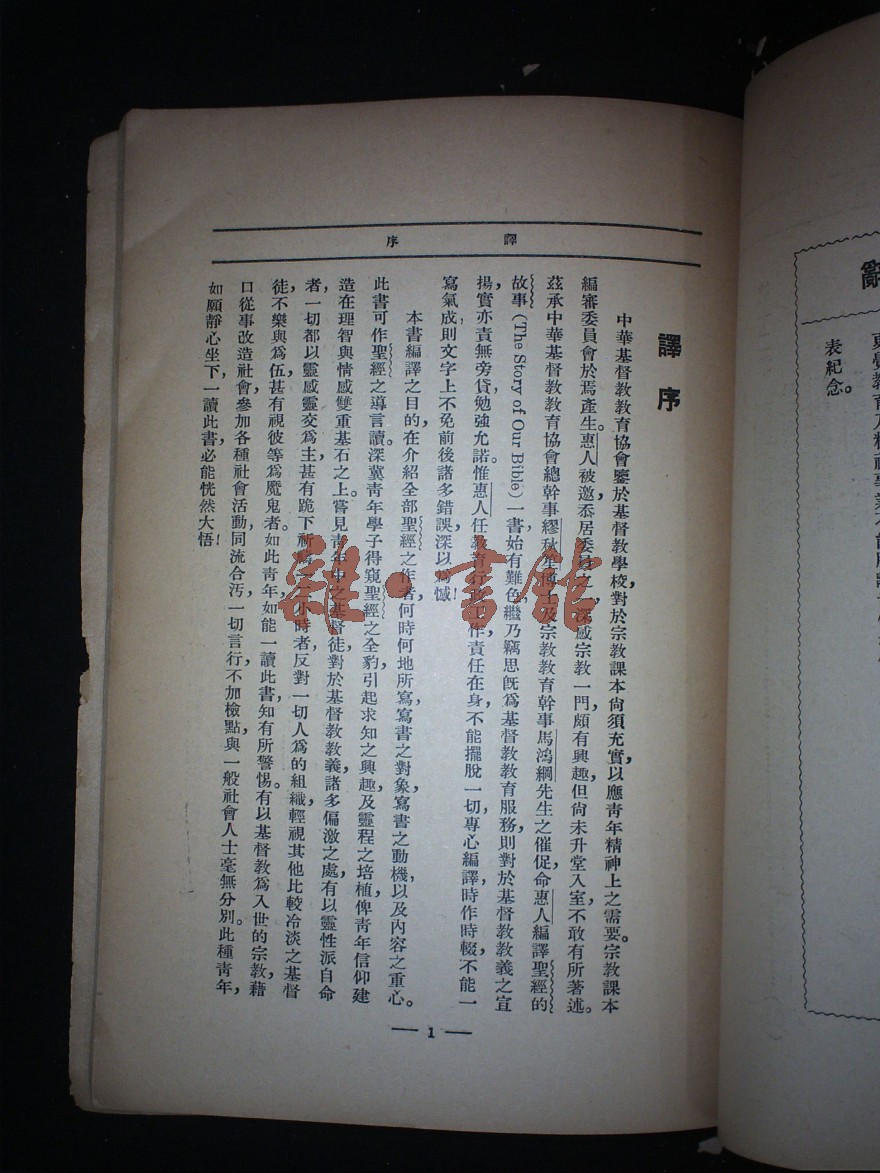 譯序
譯序
中華基督教教育協會鑒於基督教學校，對於宗教課本尙須充實，以應靑年精神上之需要。宗教課本
編審委員會於焉產生。惠人被邀忝居委員之一，深感宗教一門，頗有興趣，但尙未升堂入室，不敢有所著述。
茲承中華基督教教育協會總幹事繆秋笙博士及宗教教育幹事馬鴻綱先生之催促，命惠人編譯聖經的
故事 (The Story of Our Bible) 一書，始有難色，繼乃竊思旣爲基督教教育服務，則對於基督教教義之宣
揚，實亦責無旁貸，勉強允諾。惟惠人任教育行政工作，責任在身，不能擺脫一切，專心編譯，時作時輟，不能一
寫氣成，則文字上不免前後諸多錯誤，深以爲憾！
本書編譯之目的，在介紹全部聖經之作者，何時何地所寫，寫書之對象，寫書之動機，以及內容之重心。
此書可作聖經之導言讀。深冀靑年學子得窺聖經之全豹，引起求知之興趣，及靈程之培植，俾靑年信仰建
造在理智與情感雙重基石之上。嘗見靑年中之基督徒，對於基督教教義，諸多偏激之處，有以靈性派自命
者，一切都以靈感靈交爲主，甚有跪下祈禱一二小時者，反對一切人爲的組織，輕視其他比較冷淡之基督
徒，不樂與爲伍，甚有視彼等爲魔鬼者。如此靑年，如能一讀此書，知有所警惕。有以基督教爲入世的宗教，藉
口從事改造社會，參加各種社會活動，同流合汚，一切言行，不加檢點，與一般社會人士毫無分別。此種靑年，
如願靜心坐下，一讀此書，必能恍然大悟！
— 1 —
表紀念。
雜·書館